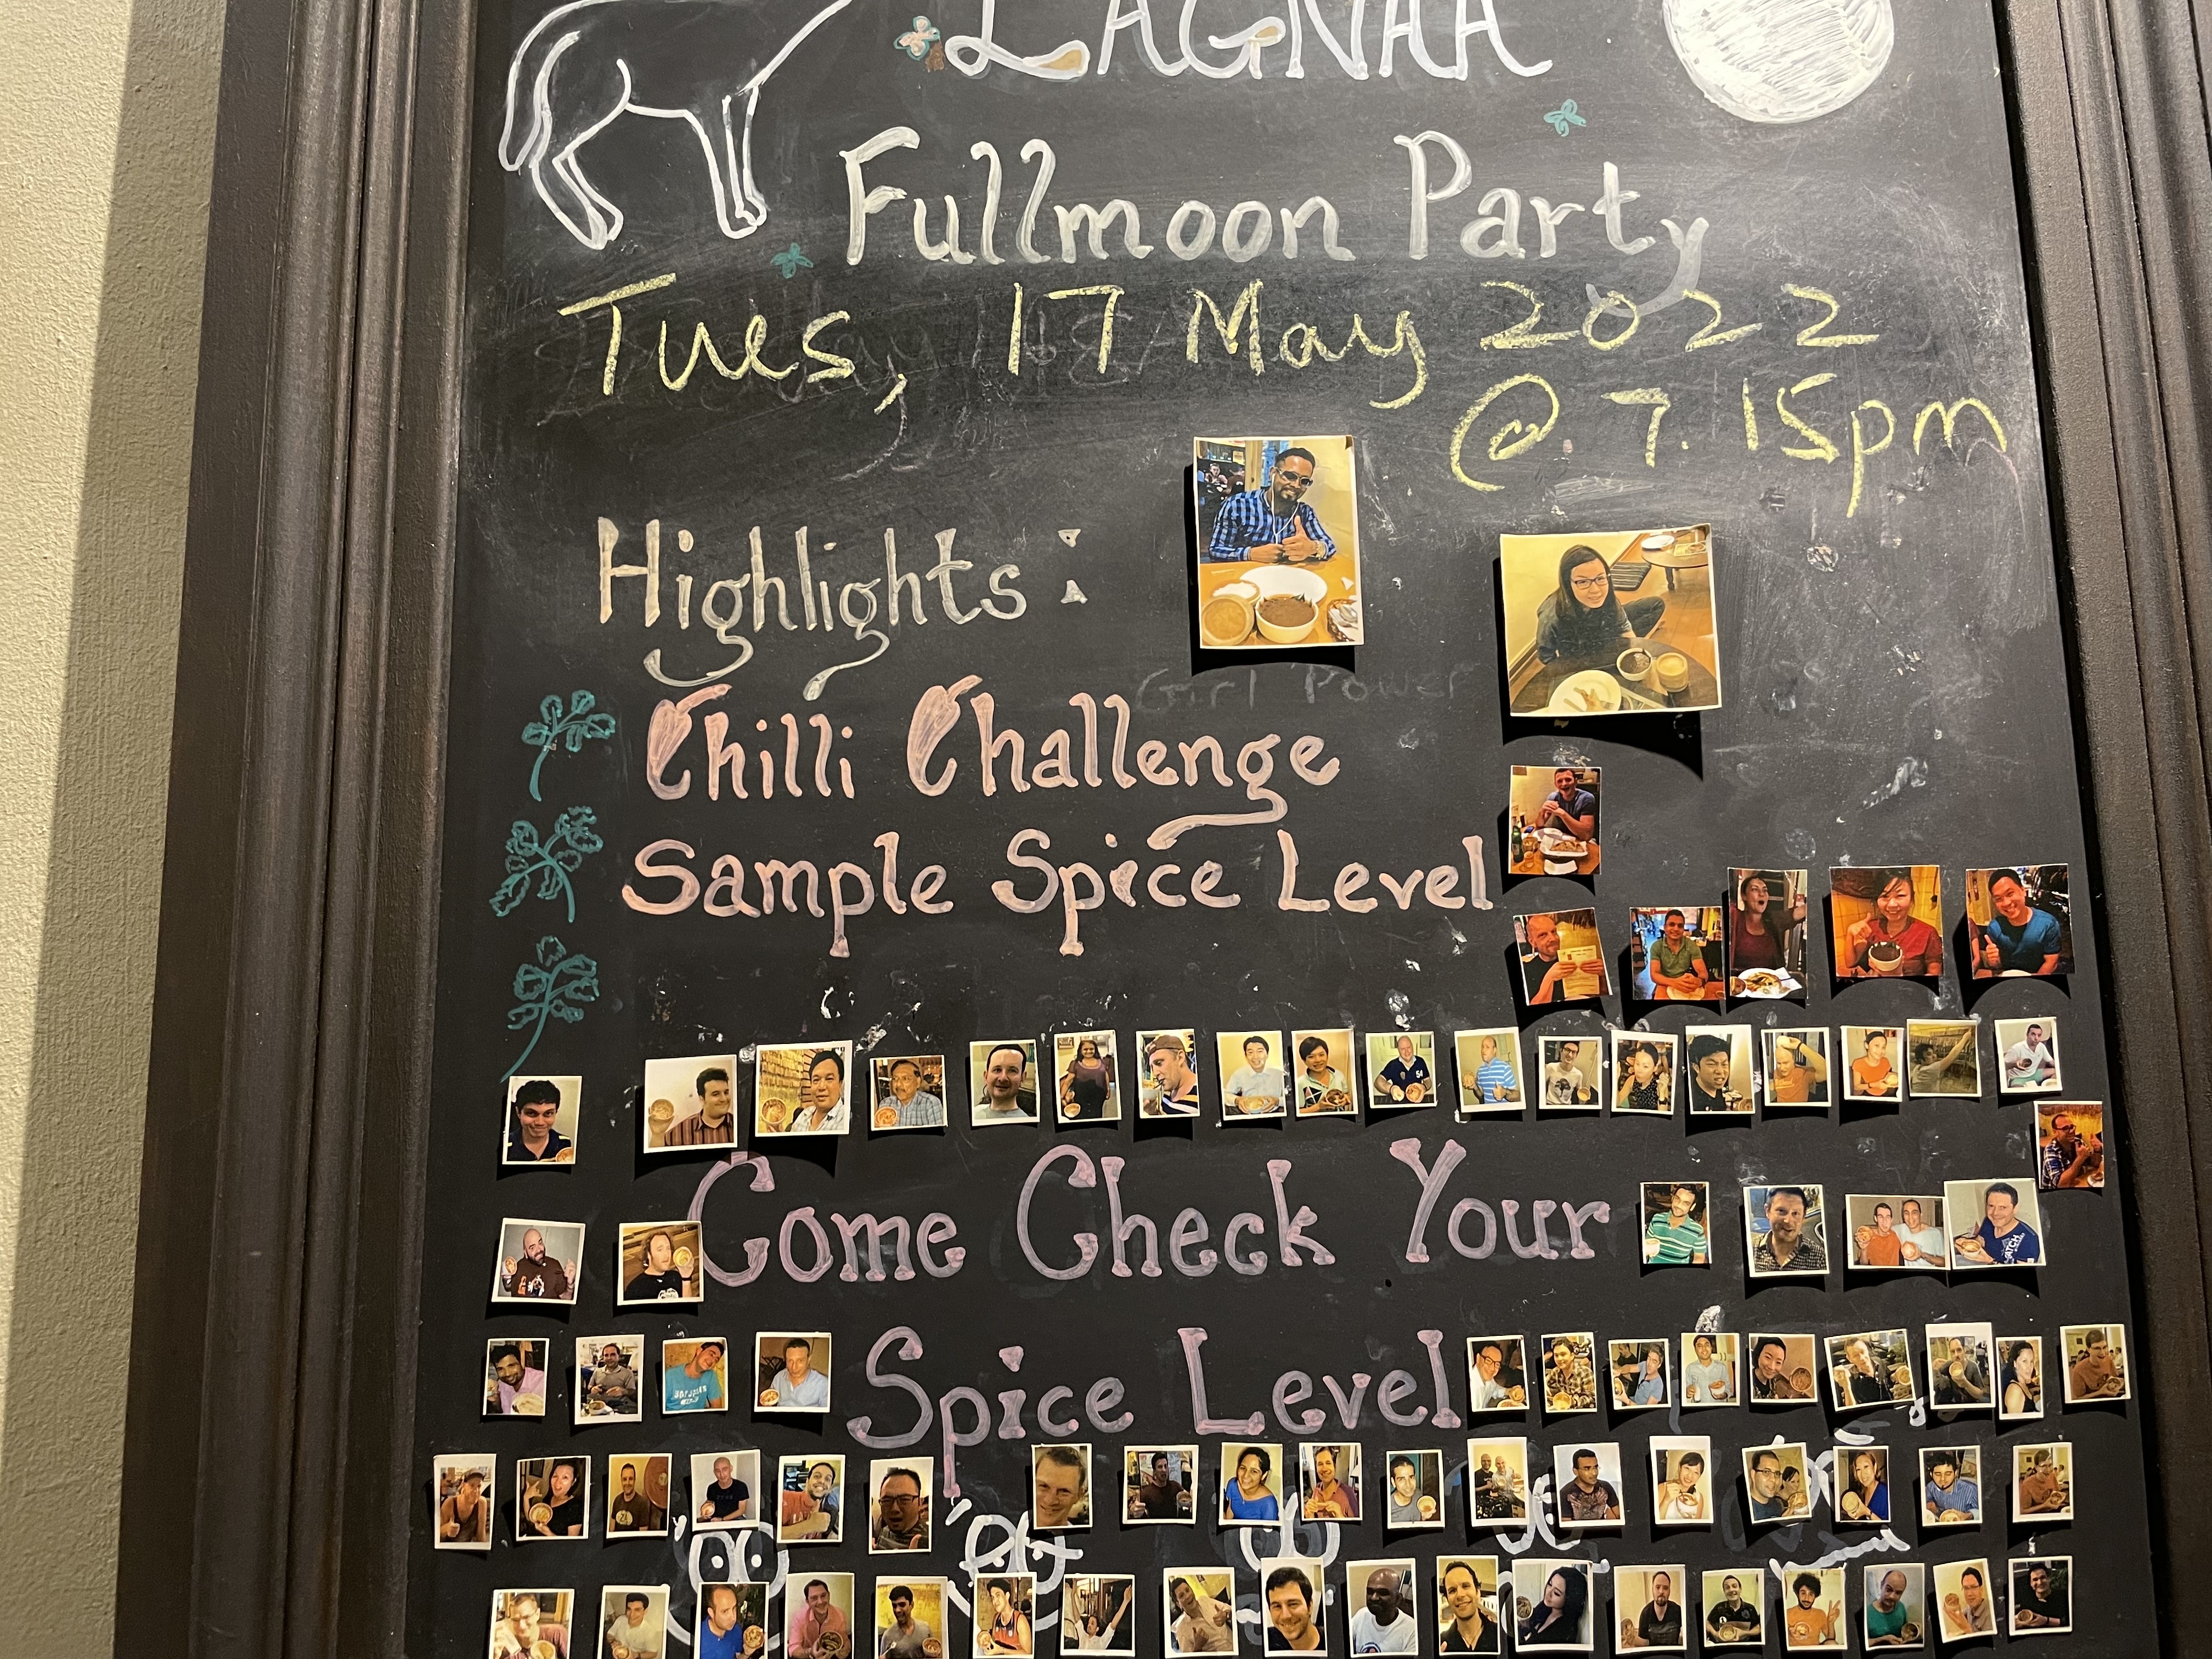 LAGNAA
Fullmoon Party
Tues, 17 May 2022
@ 7.15pm
Highlights:
Girl Power
Chilli Challenge
Sample Spice Level
Come Check Your
Spice Level